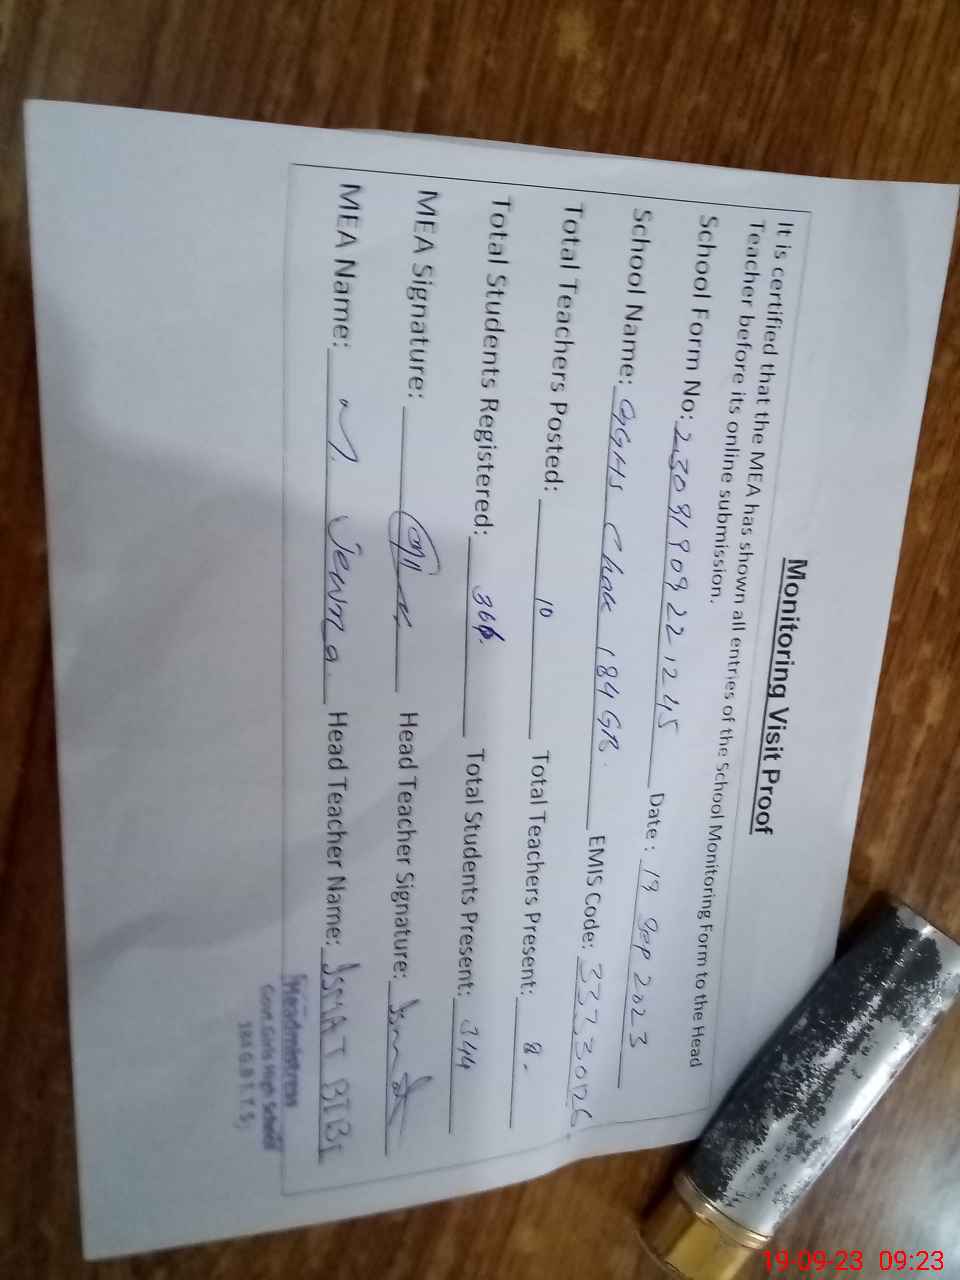 Monitoring Visit Proof
It is certified that the MEA has shown all entries of the School Monitoring Form to the Head
Teacher before its online submission.
School Form No: 23091909221245 Date: 19 Sep 2023
School Name: GGHS Chak 184 GB. EMIS Code: 33330126.
Total Teachers Posted: 10 Total Teachers Present: 8.
Total Students Registered: Total Students Present: 344
MEA Signature: Head Teacher Signature:
MEA Name: M. Head Teacher Name: ISMAT BIBI
Headmistress
Govt. Girls High School
184 G.B T.T.S,
19-09-23 09:23